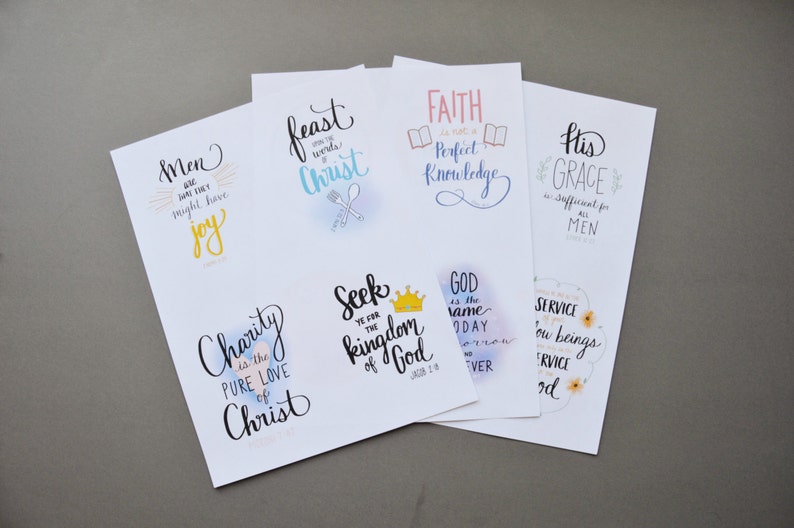 Men
ARE
THAT THEY
might have
joy
feast
UPON THE
words
OF
Christ
FAITH
is not a
Perfect
Knowledge
His
GRACE
is sufficient for
ALL
MEN
Charity
is the
PURE LOVE
of
Christ
MORONI 7:47
Seek
YE FOR THE
kingdom
of God
JACOB 2:18
GOD
is the
same
TODAY
AND
SERVICE
beings
SERVICE